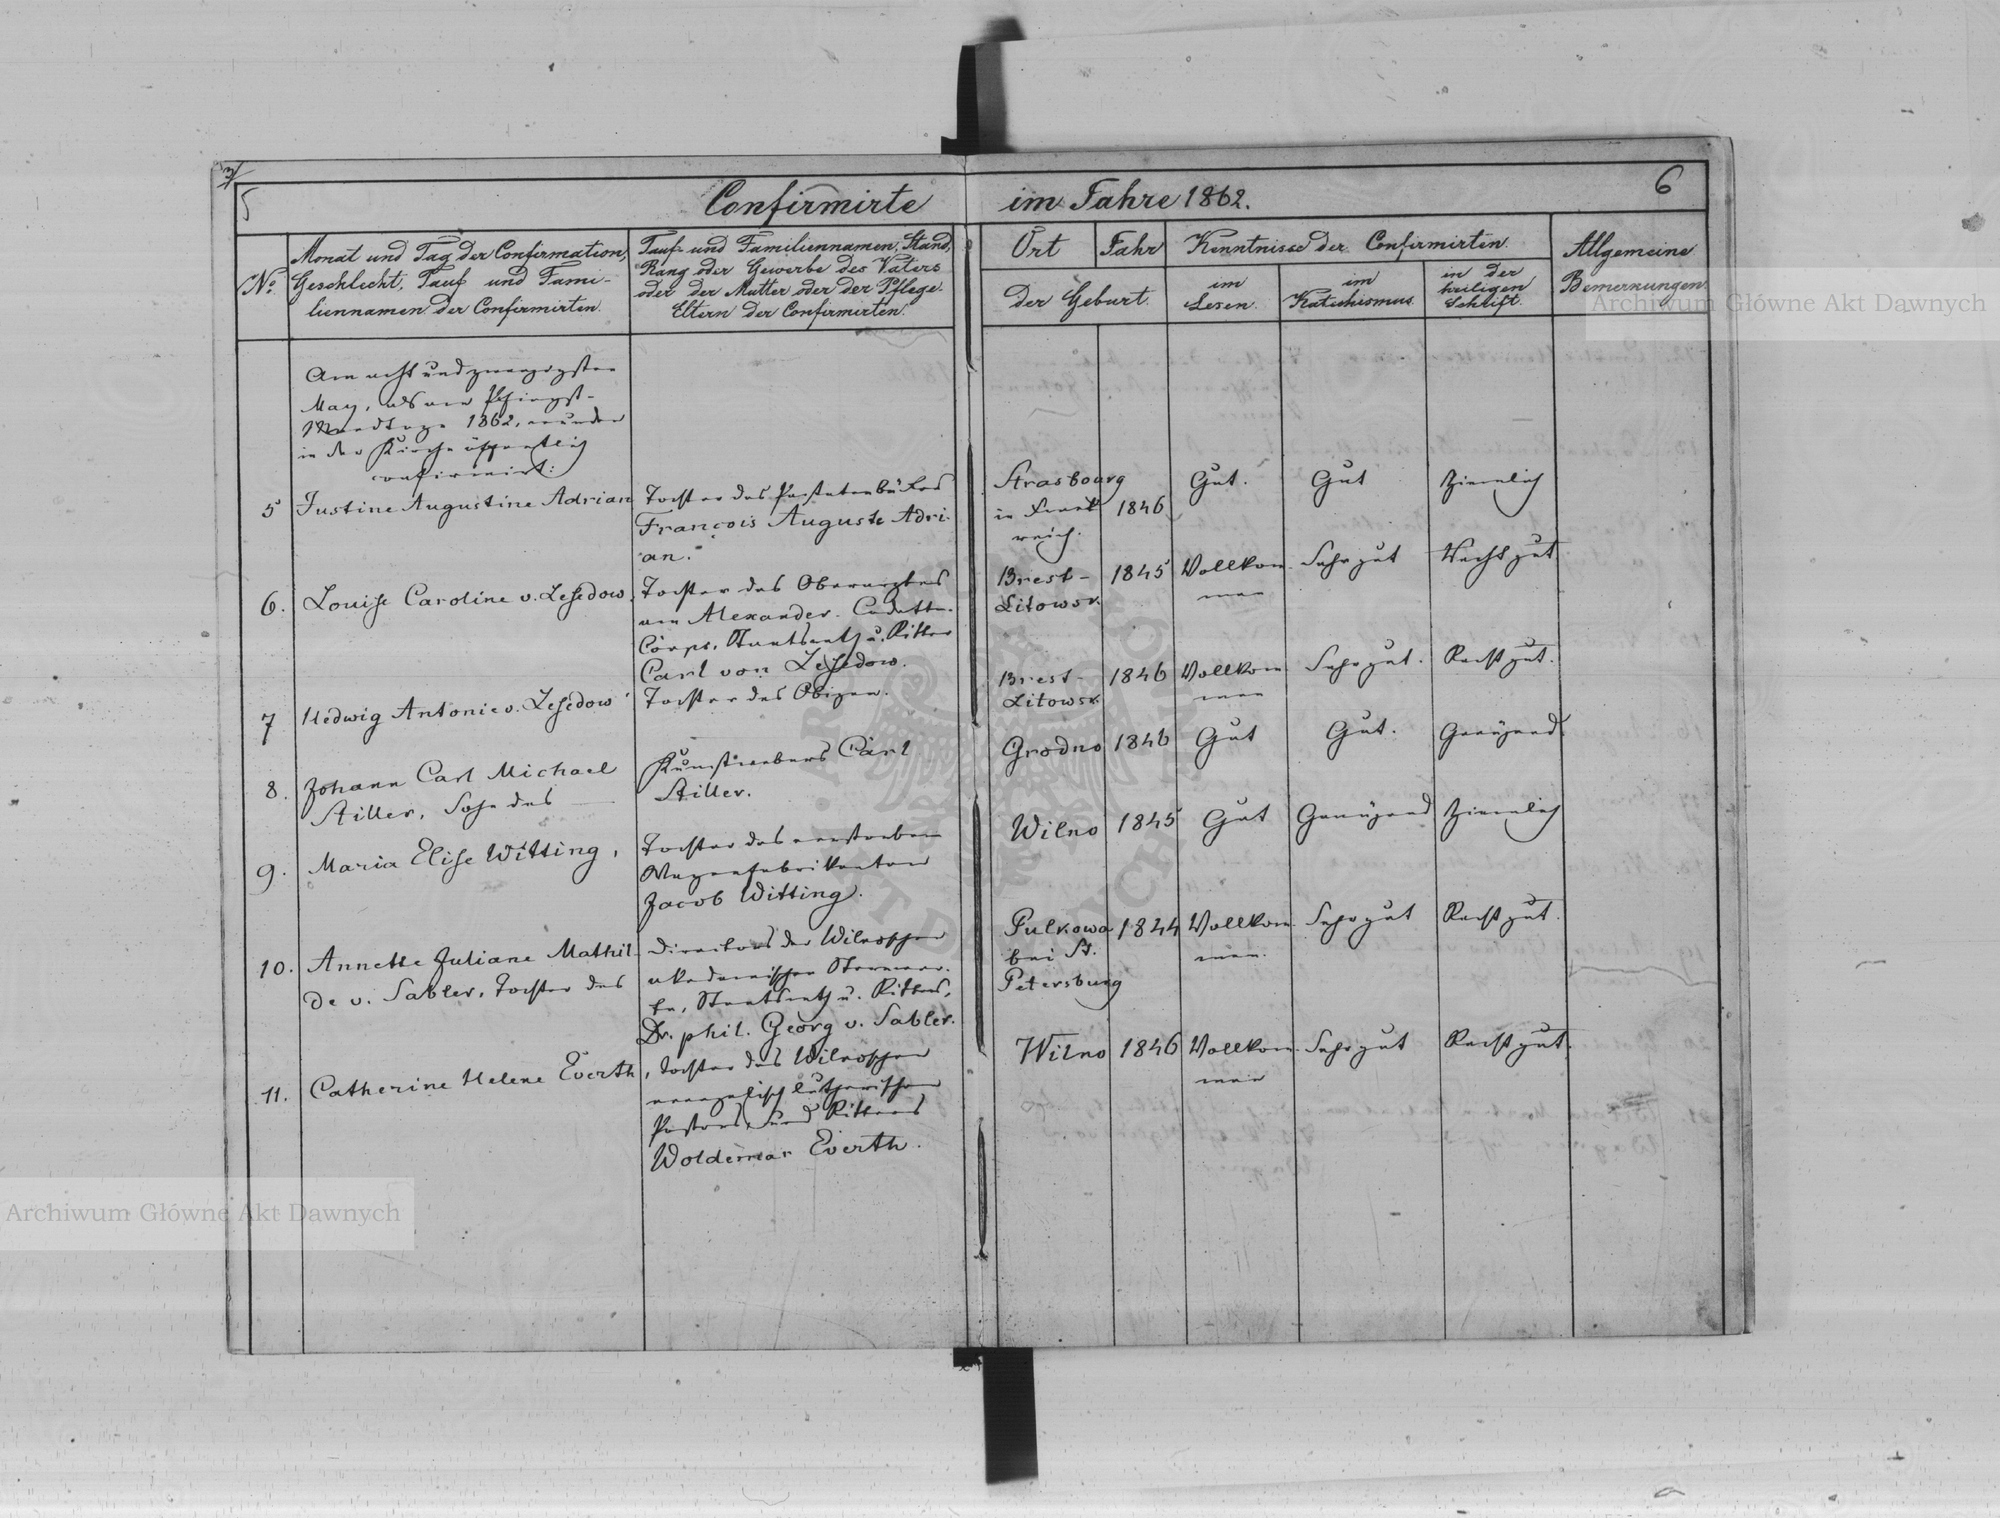 3/
5
Confirmirte im Jahre 1862.
6
No.
Monat und Tag der Confirmation,
Geschlecht, Tauf und Fami-
liennamen der Confirmirten.
Tauf- und Familiennamen, Stand,
Rang oder Gewerbe des Vaters
oder der Mutter oder der Pflege-
Eltern der Confirmirten.
Ort
Jahr
der Geburt.
Kenntnisse der Confirmirten.
im
Lesen.
im
Katechismus
in der
heiligen
Schrift.
Allgemeine
Bemerkungen
Am acht und zwanzigsten
May, als am Pfingst-
Montage 1862, wurden
in der Kirche öffentlich
confirmirt:
5 Justine Augustine Adrian
Tochter des
François Auguste Adri-
an.
Strasbourg
in Frank
reich.
1846
Gut.
Gut
Ziemlich
6. Louise Caroline v. Lesedow,
Tochter des Oberarztes
am Alexander Cadetten-
Corps, Staatsrath u. Ritter
Carl von Lesedow.
Brest-
Litowsk
1845
Vollkom
men
Sehr gut
Recht gut
7 Hedwig Antonie v. Lesedow
Tochter des Obigen.
Brest-
Litowsk
1846
Vollkom
men
Sehr gut.
Recht gut.
8. Johann Carl Michael
Stiller, Sohn des
Kunstwebers Carl
Stiller.
Grodno
1846
Gut
Gut.
Genügend
9. Maria Elise Witting,
Tochter des verstorbenen
Wagenfabrikanten
Jacob Witting.
Wilno
1845
Gut
Genügend
Ziemlich
10. Annette Juliane Mathil-
de v. Sabler, Tochter des
Directors der Wilnaschen
akademischen Sternwar-
te, Staatsrath u. Ritters,
Dr. phil. Georg v. Sabler.
Pulkowa
bei St.
Petersburg
1844
Vollkom
men.
Sehr gut
Recht gut.
11. Catherine Helene Everth
, Tochter des Wilnaschen
evangelisch lutherischen
Pastors und Ritters
Woldemar Everth.
Wilno
1846
Vollkom
men
Sehr gut
Recht gut.
Archiwum Główne Akt Dawnych
Archiwum Główne Akt Dawnych